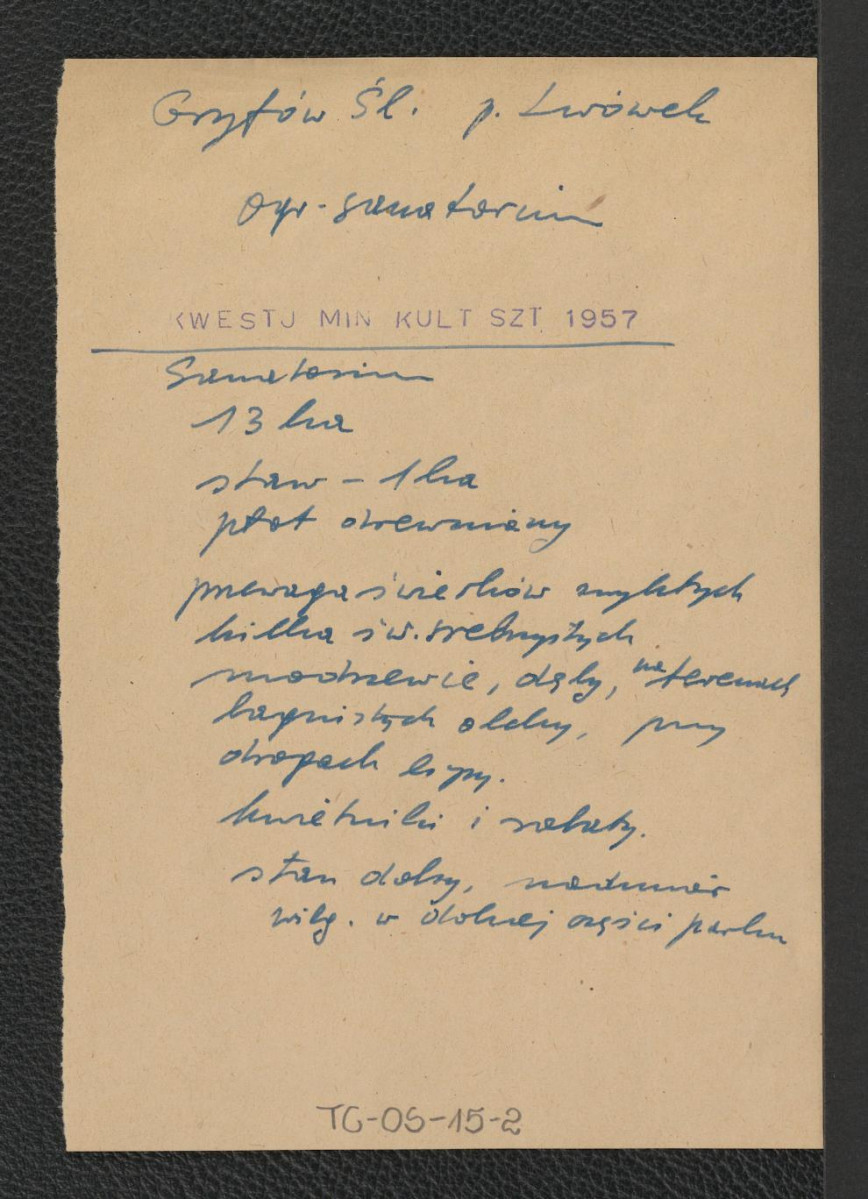 Gryfów Śl. p. Lwówek
Ogr-sanatorium
KWESTJ MIN KULT SZT 1957
Sanatorium
13 ha
staw - 1 ha
płot drewniany
przewaga świerków zwykłych
kilka św. srebrzystych
modrzewie, dęby, na terenach
bagnistych olchy, przy
drogach lipy.
kwietniki i rabaty.
stan dobry, nadmiar
wilg. w dolnej części parku
TG-OS-15-2